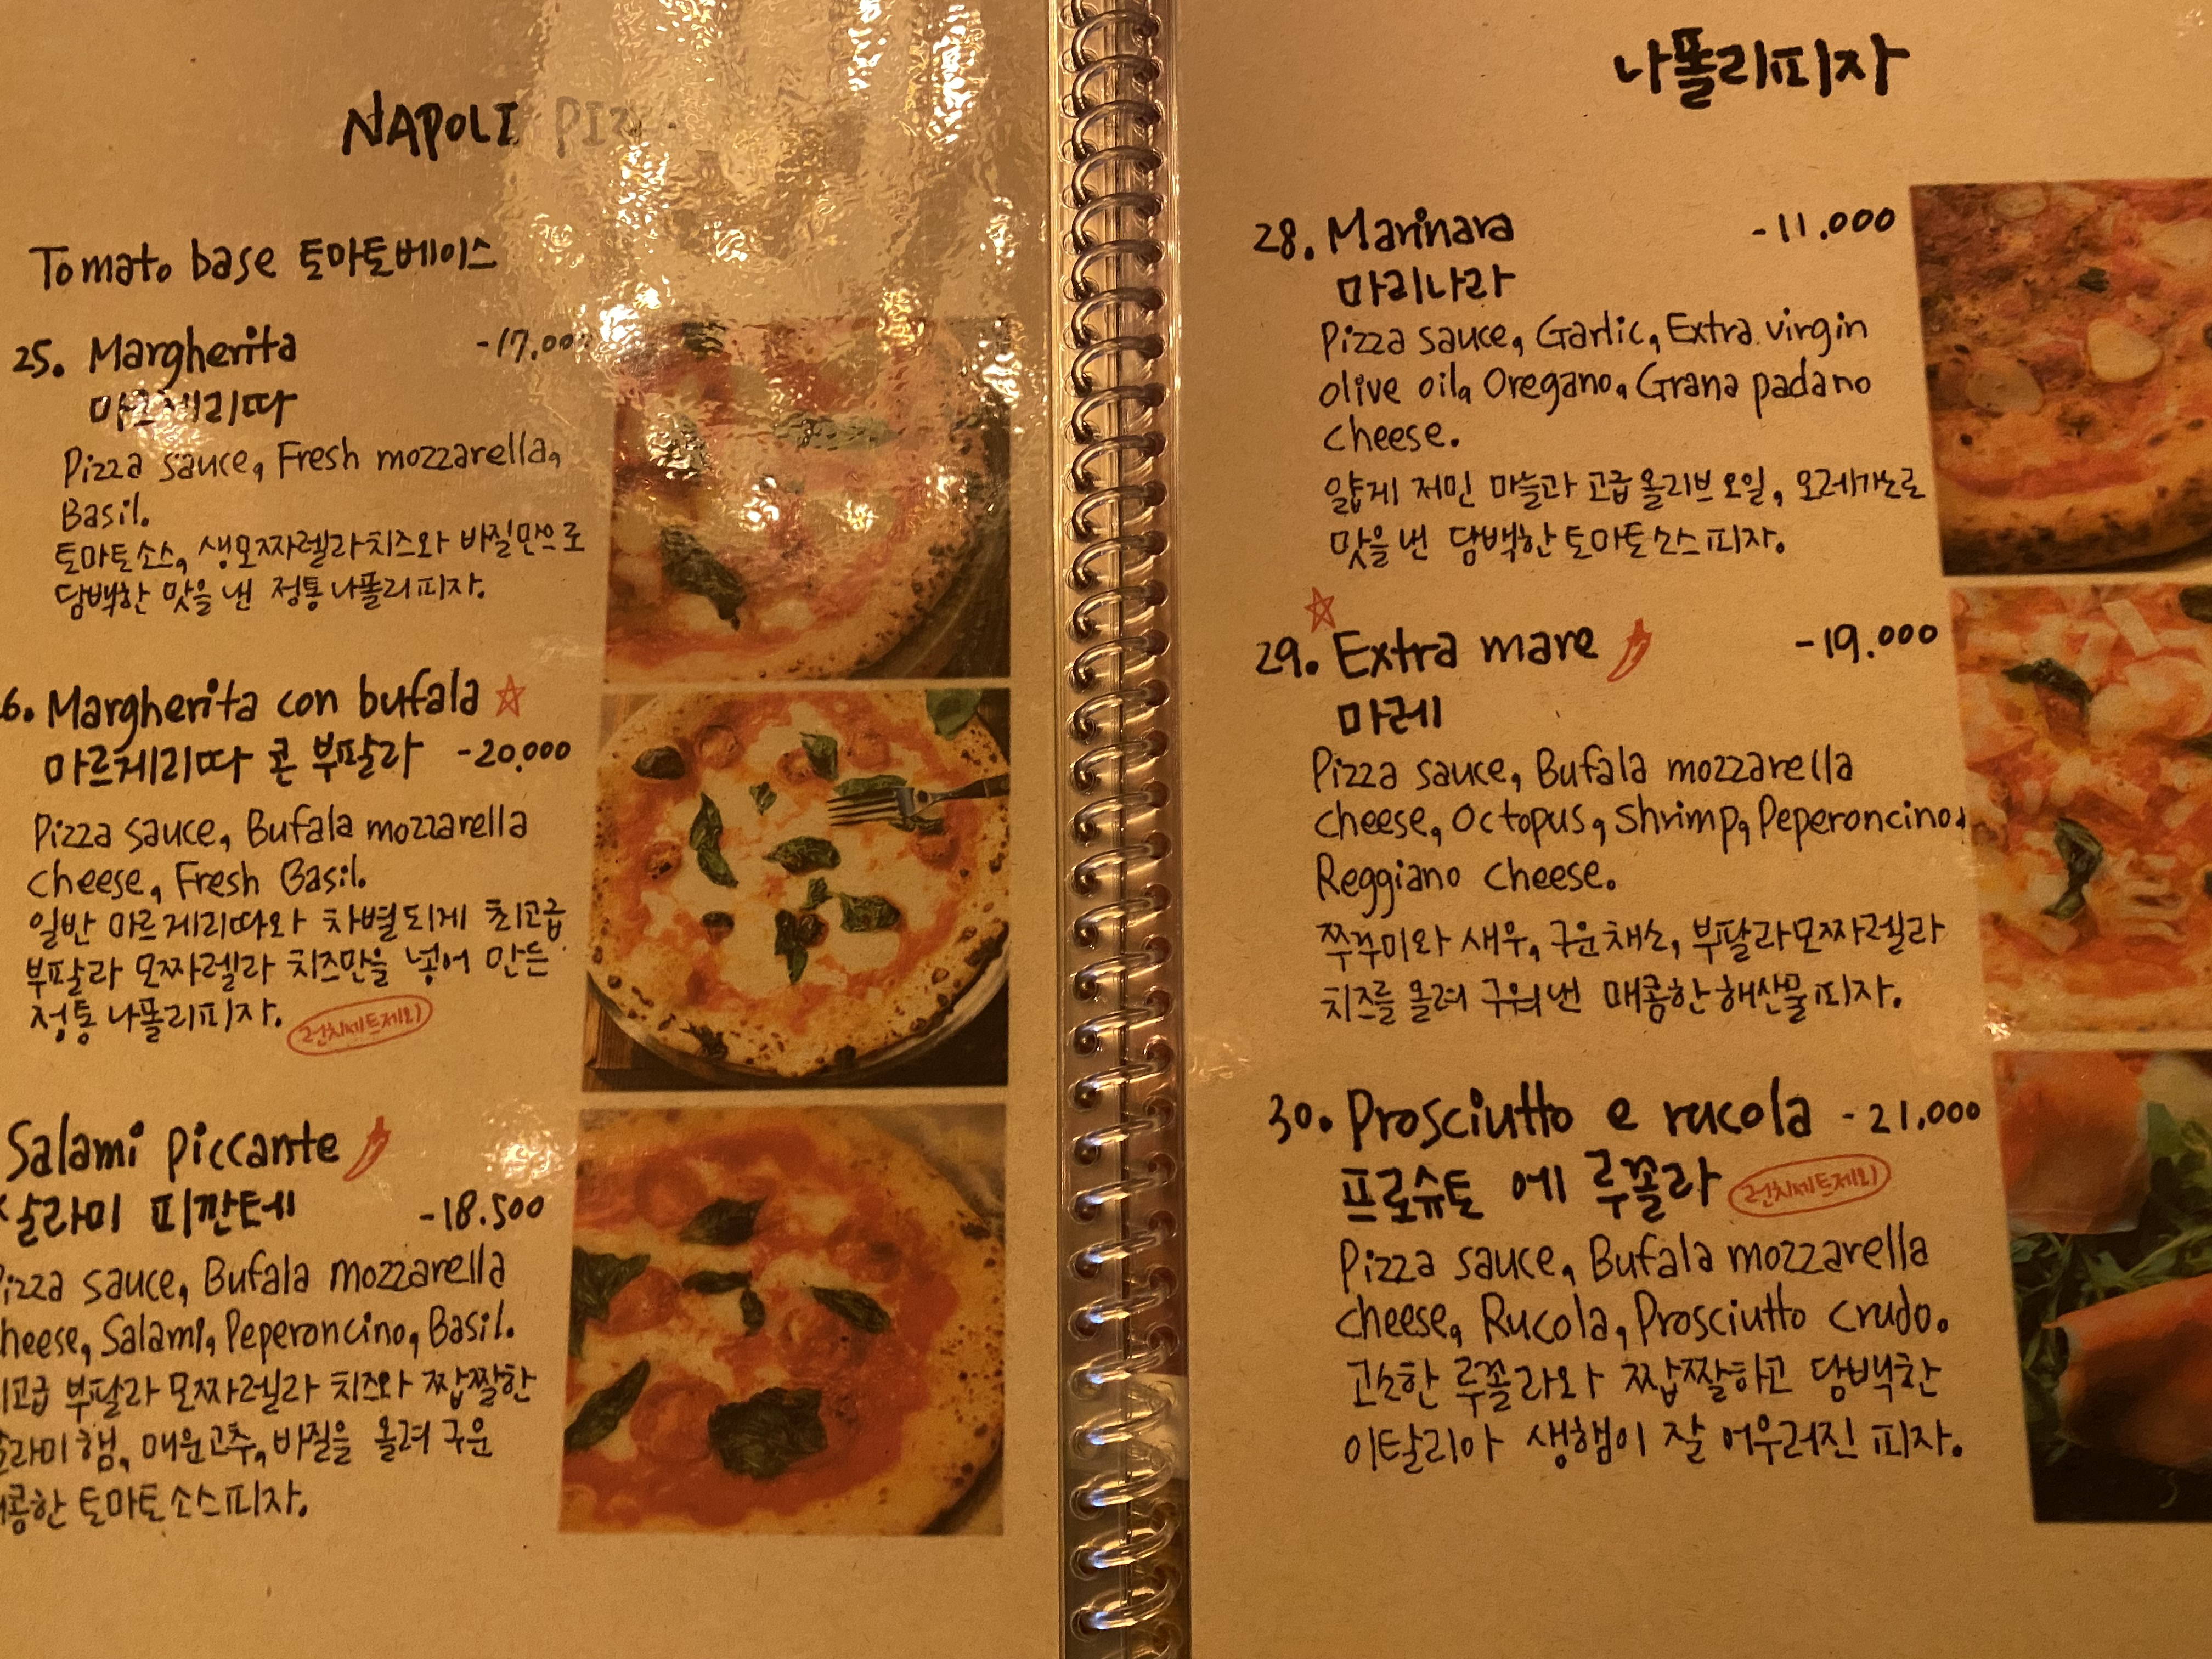 NAPOLI
Tomato base 토마토베이스
25. Margherita
마르게리따
Pizza sauce, Fresh mozzarella,
Basil.
토마토소스, 생모짜렐라치즈와 바질만으로
담백한 맛을 낸 정통나폴리피자.
6. Margherita con bufala ☆
마르게리따 콘 부팔라 -20.000
Pizza sauce, Bufala mozzarella
cheese, Fresh Basil.
일반 마르게리따와 차별되게 최고급
부팔라 모짜렐라 치즈만을 넣어 만든
정통나폴리피자. 런치세트제외
Salami piccante
살라미 피깐테 -18.500
izza sauce, Bufala mozzarella
heese, Salami, Peperoncino, Basil.
고급 부팔라 모짜렐라 치즈와 짭짤한
라미햄, 매운고추, 바질을 올려 구운
콤한 토마토소스피자.
나폴리피자
28. Marinara -11.000
마리나라
Pizza sauce, Garlic, Extra virgin
olive oil, Oregano, Grana padano
cheese.
얇게 저민 마늘과 고급올리브오일, 오레가노로
맛을낸 담백한토마토소스피자.
☆
29. Extra mare -19.000
마레
Pizza sauce, Bufala mozzarella
cheese, Octopus, Shrimp, Peperoncino,
Reggiano cheese.
쭈꾸미와 새우, 구운채소, 부팔라모짜렐라
치즈를 올려 구워낸 매콤한해산물피자.
30. Prosciutto e rucola -21.000
프로슈토 에 루꼴라 런치세트제외
Pizza sauce, Bufala mozzarella
cheese, Rucola, Prosciutto crudo.
고소한 루꼴라와 짭짤하고 담백한
이탈리아 생햄이 잘 어우러진 피자.